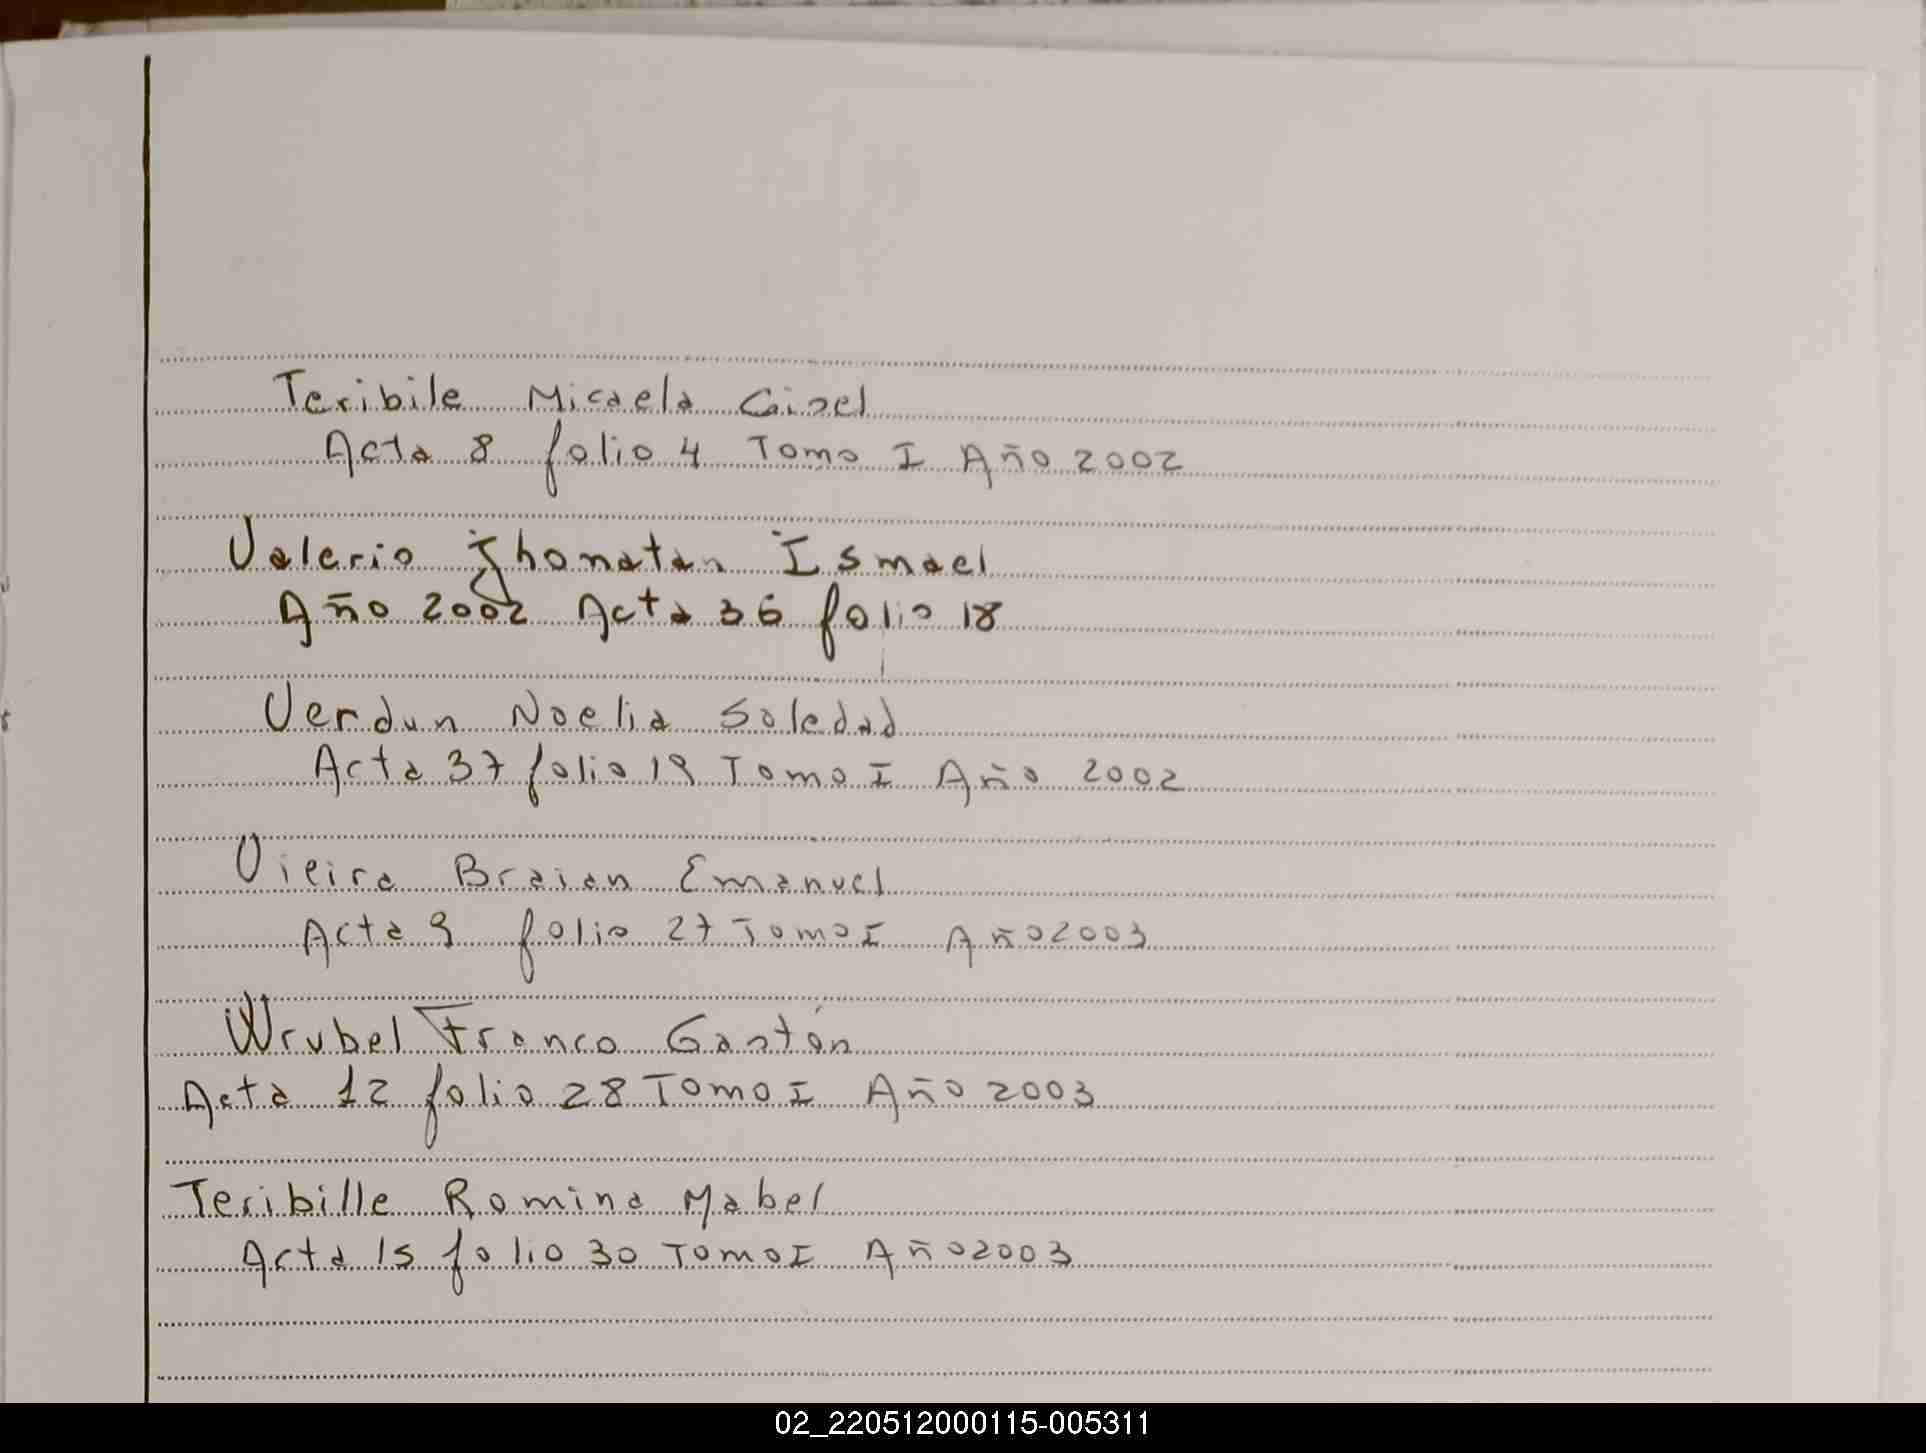 Teribile Micaela Gisel
Acta 8 folio 4 Tomo I Año 2002
Valerio Jhonatan Ismael
Año 2002 Acta 36 folio 18
Verdun Noelia Soledad
Acta 37 folio 19 Tomo I Año 2002
Vieira Braian Emanuel
Acta 9 folio 27 Tomo I Año 2003
Wrubel Franco Gastón
Acta 12 folio 28 Tomo I Año 2003
Teribille Romina Mabel
Acta 15 folio 30 Tomo I Año 2003
02_220512000115-005311